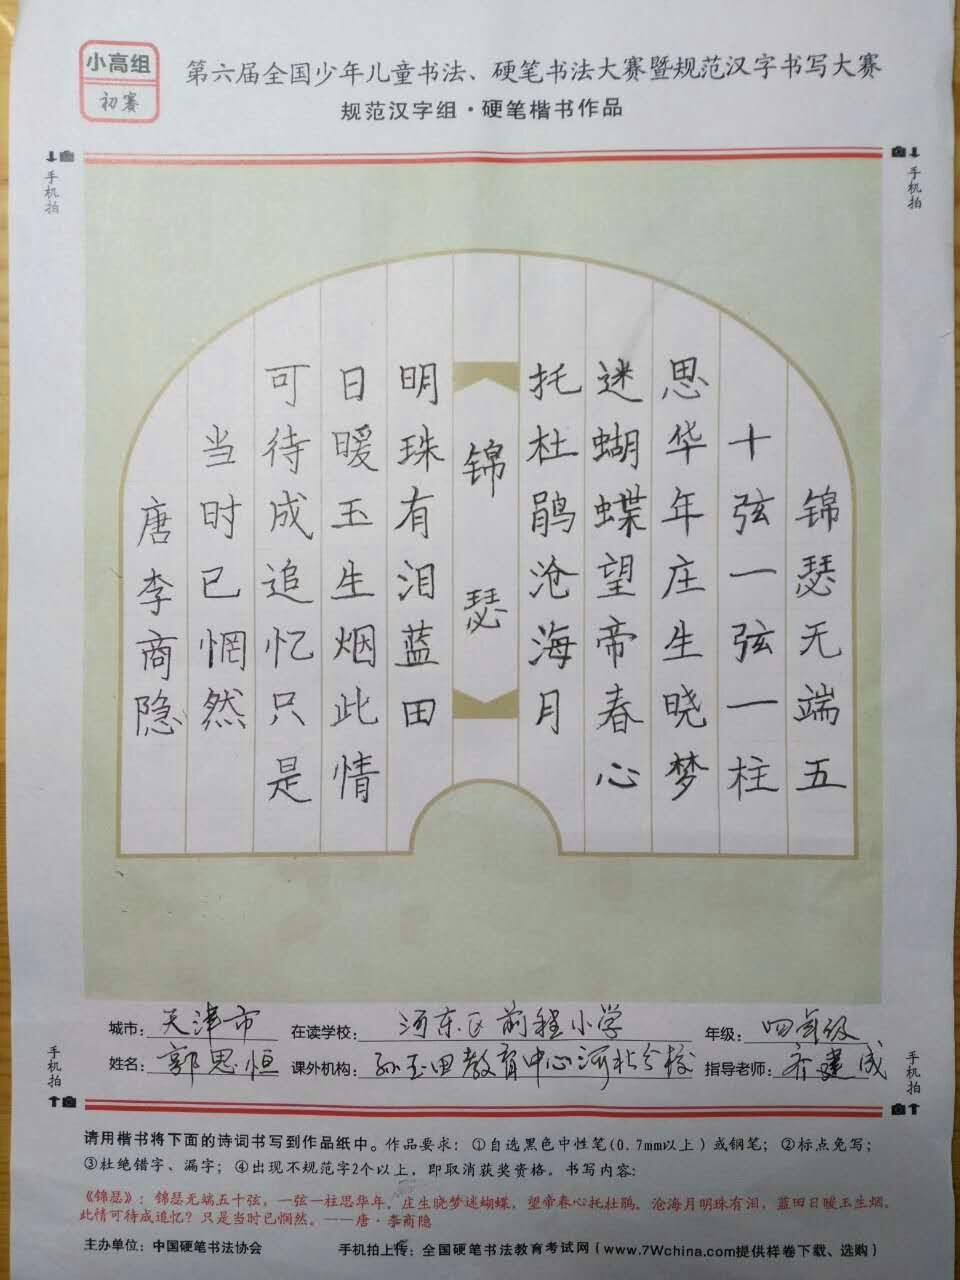 小高组
初赛
第六届全国少年儿童书法、硬笔书法大赛暨规范汉字书写大赛
规范汉字组·硬笔楷书作品
手机拍
手机拍
锦瑟无端五
十弦一弦一柱
思华年庄生晓梦
迷蝴蝶望帝春心
托杜鹃沧海月
锦瑟
明珠有泪蓝田
日暖玉生烟此情
可待成追忆只是
当时已惘然
唐李商隐
城市：天津市 在读学校：河东区前程小学 年级：四年级
姓名：郭思恒 课外机构：孙玉田教育中心河北分校 指导老师：齐建成
手机拍
手机拍
请用楷书将下面的诗词书写到作品纸中。作品要求：①自选黑色中性笔(0.7mm以上）或钢笔；②标点免写；
③杜绝错字、漏字；④出现不规范字2个以上，即取消获奖资格。书写内容：
《锦瑟》：锦瑟无端五十弦，一弦一柱思华年。庄生晓梦迷蝴蝶，望帝春心托杜鹃。沧海月明珠有泪，蓝田日暖玉生烟。
此情可待成追忆？只是当时已惘然。——唐·李商隐
主办单位：中国硬笔书法协会 手机拍上传：全国硬笔书法教育考试网（www.7Wchina.com提供样卷下载、选购）